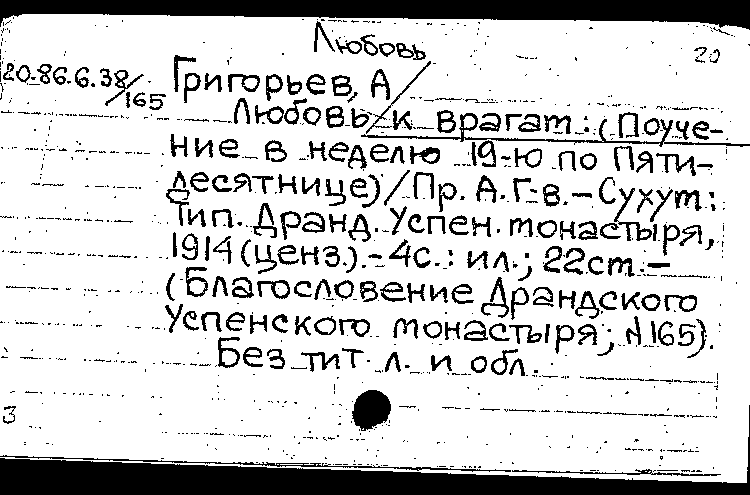 Любовь
20
20-86.6.38/165
Григорьев, А
Любовь к врагам: (Поуче-
ние в неделю 19-ю по Пяти-
десятнице) / Пр. А. Г-в. - Сухум:
Тип. Дранд. Успен. монастыря,
1914 (ценз.). - 4с.: ил.; 22cm. -
(Благословение Драндского
Успенского монастыря; N 165).
Без тит. л. и обл.
3